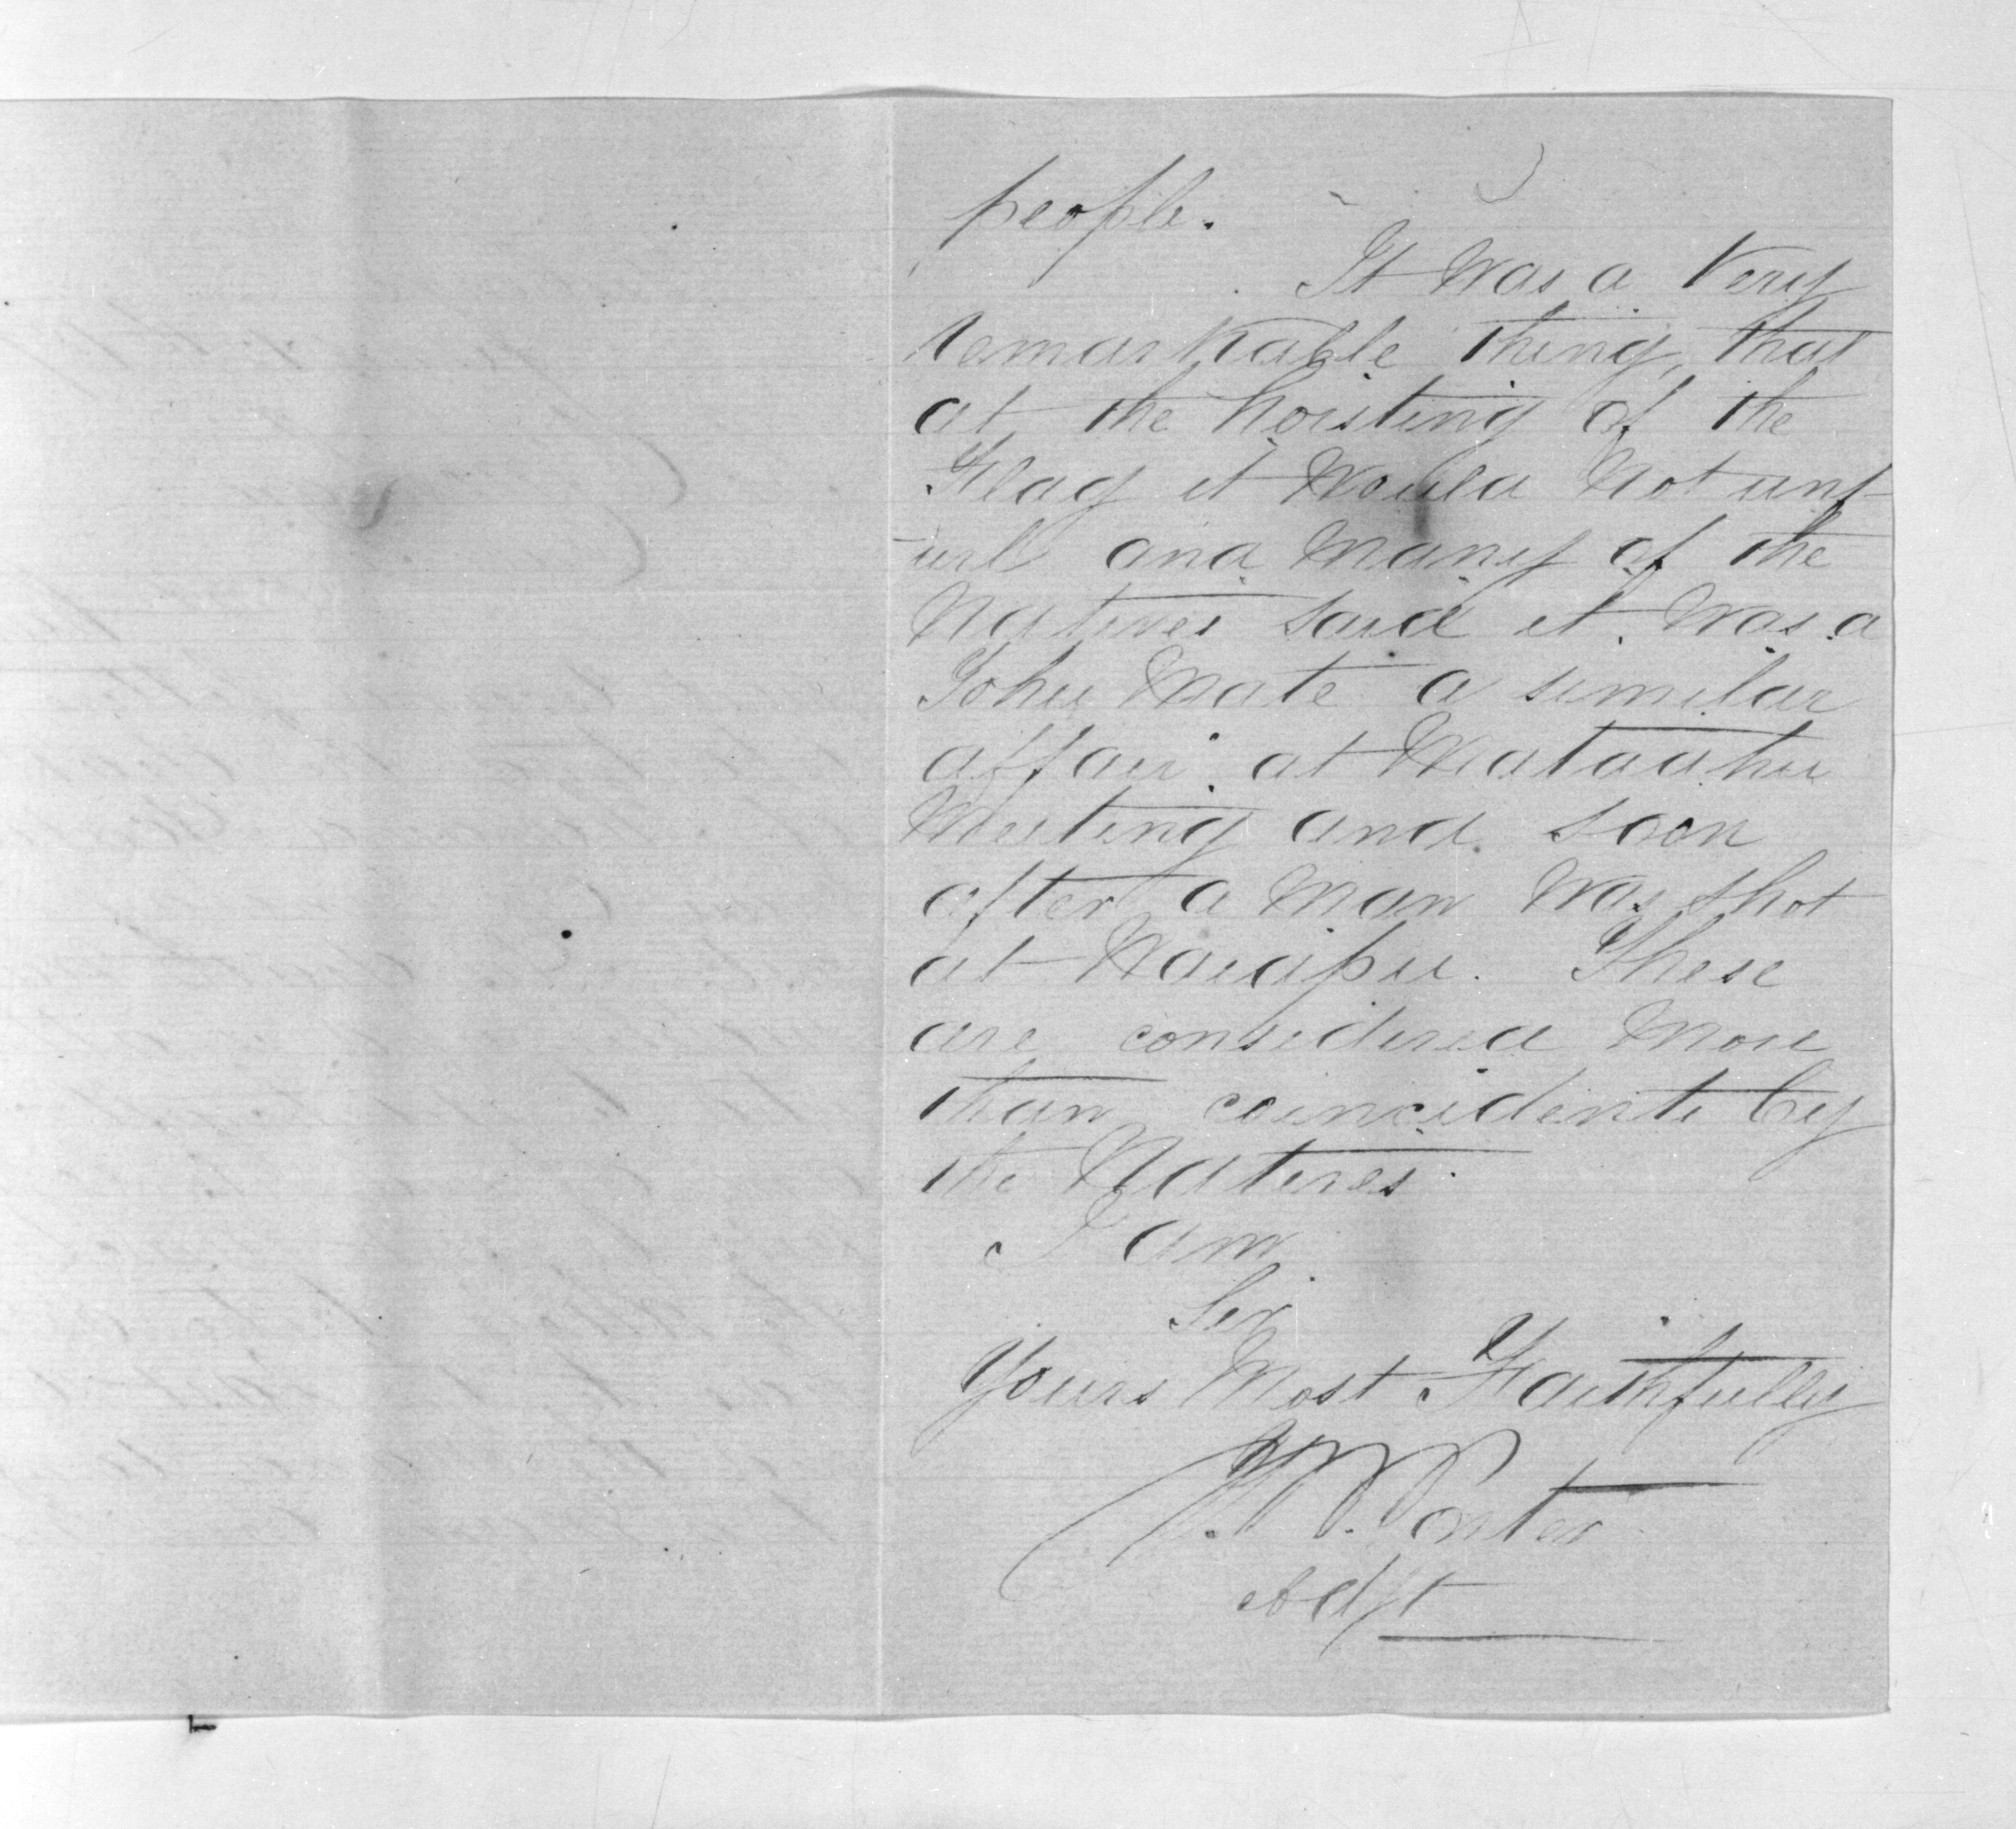 people.
It was a Very
remarkable thing, that
at the hoisting of the
Flag it Would Not unf-
-url and Many of the
Natives said it was a
Tohu Mate a similar
affair at Mataahu
Meeting and soon
after a Man was shot
at Waiapu. These
are considered More
than coincidents by
the Natives.
I am
Sir
Yours Most Faithfully
Porter
Adjt